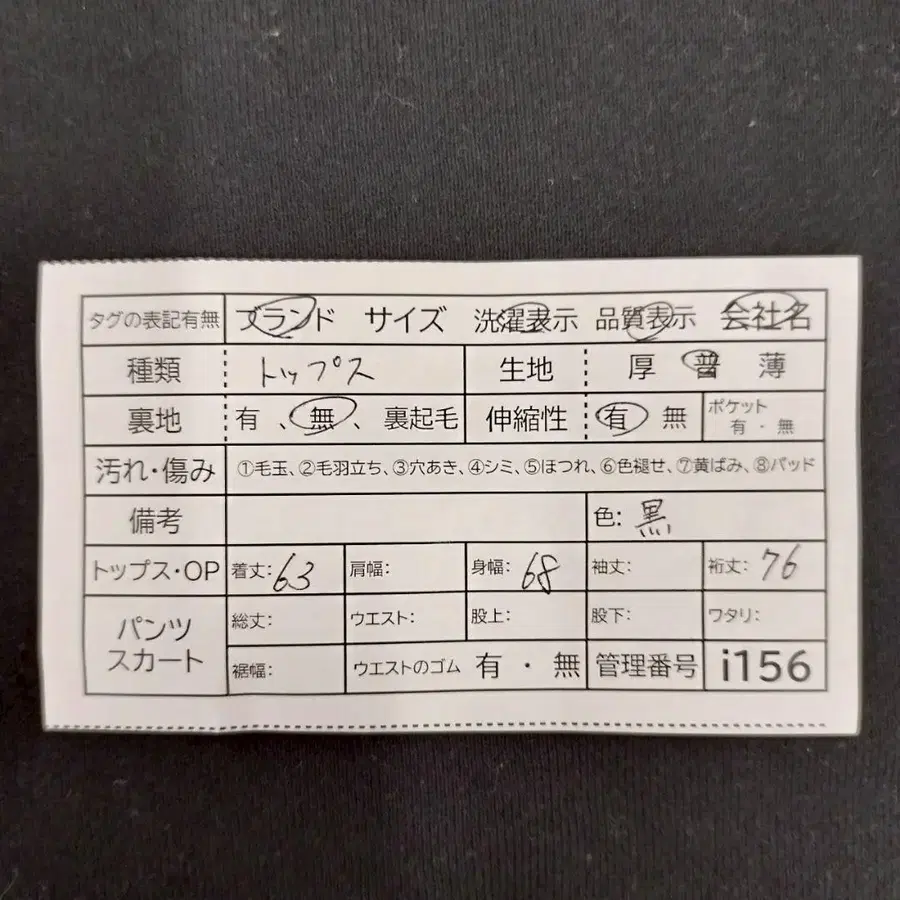 タグの表記有無 ブランド サイズ 洗濯表示 品質表示 会社名
種類 トップス 生地 厚 普 薄
裏地 有、無、裏起毛 伸縮性 有 無 ポケット 有・無
汚れ・傷み ①毛玉、②毛羽立ち、③穴あき、④シミ、⑤ほつれ、⑥色褪せ、⑦黄ばみ、⑧パッド
備考 色: 黒
トップス・OP 着丈: 63 肩幅: 身幅: 68 袖丈: 裄丈: 76
パンツ スカート 総丈: ウエスト: 股上: 股下: ワタリ:
裾幅: ウエストのゴム 有・無 管理番号 i156